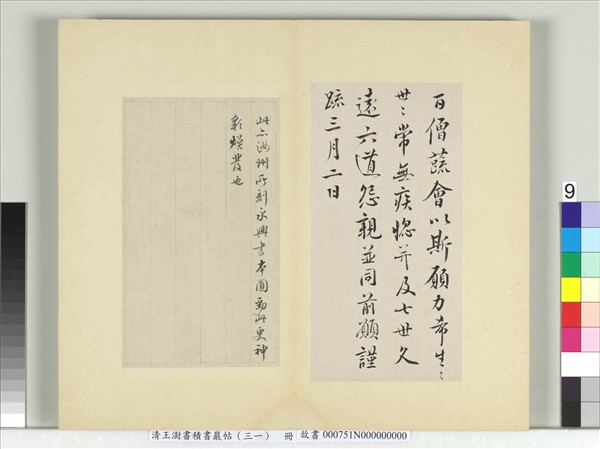 百僧蔬會以斯願力希生〻
世〻常無疾惱并及七世久
遠六道怨親並同前願謹
疏三月二日
此亦汝州所刻永興書本圓勁此更神
彩煥發也
9
清王澍書積書巖帖（三一） 冊 故書 000751N000000000